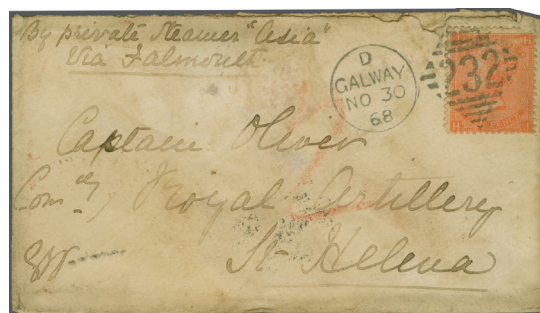 By private Steamer "Asia"
Via Falmouth
D
GALWAY
NO 30
68
232
Captain Oliver
Comg Royal Artillery
St Helena